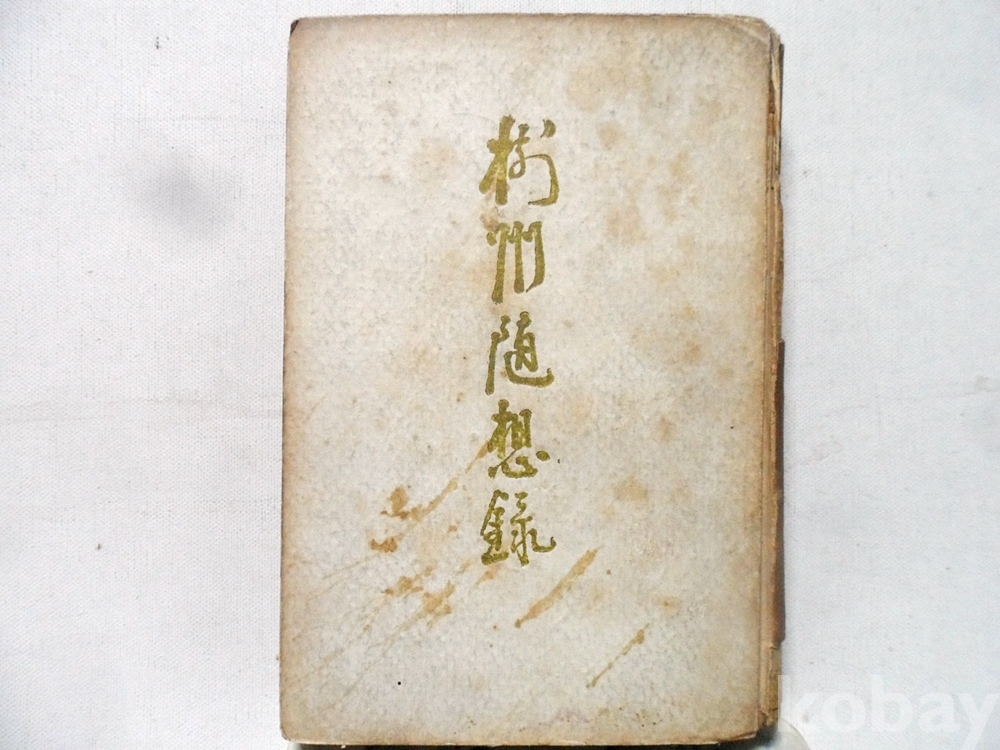 樹州随想錄
kobay